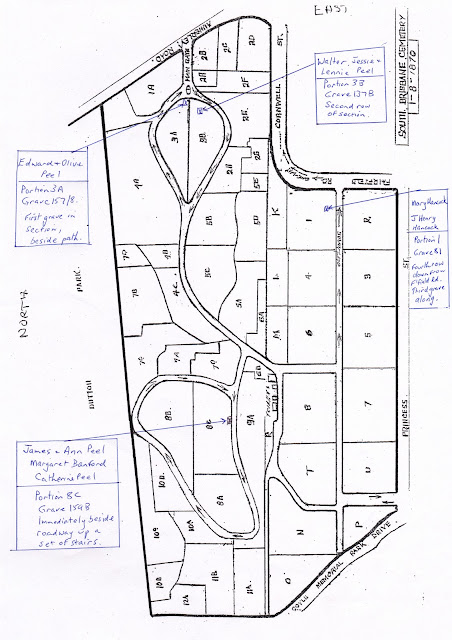 EAST
SOUTH BRISBANE CEMETERY
1-8-1870
NORTH
DUTTON PARK
ROAD
MAIN GATE
CORNWELL ST.
PRINCESS ST.
MEMORIAL PARK DRIVE
Walter, Jessie &
Lennie Peel
Portion 3B
Grave 137B
Second row
of section.
Edward & Olive
Peel
Portion 3A
Grave 157/8.
First grave in
section,
beside path.
Mary Hancock
J Henry
Hancock
Portion 1
Grave 81
Fourth row
down from
Fifield Rd.
Third grave
along.
James & Ann Peel
Margaret Banford
Catherine Peel
Portion 8C
Grave 159B
Immediately beside
roadway up a
set of stairs.
1A
2B
2C
2D
2A
2F
2E
3A
3B
2H
2G
4A
5E
5B
5D
K
1
R
7D
4B
7B
4C
5C
5A
6A
L
4
3
M
6
5
7C
7A
7D
6B
8B
8C
9A
8
7
R
8A
T
U
10D
10A
10B
12A
11B
11A
N
O
P